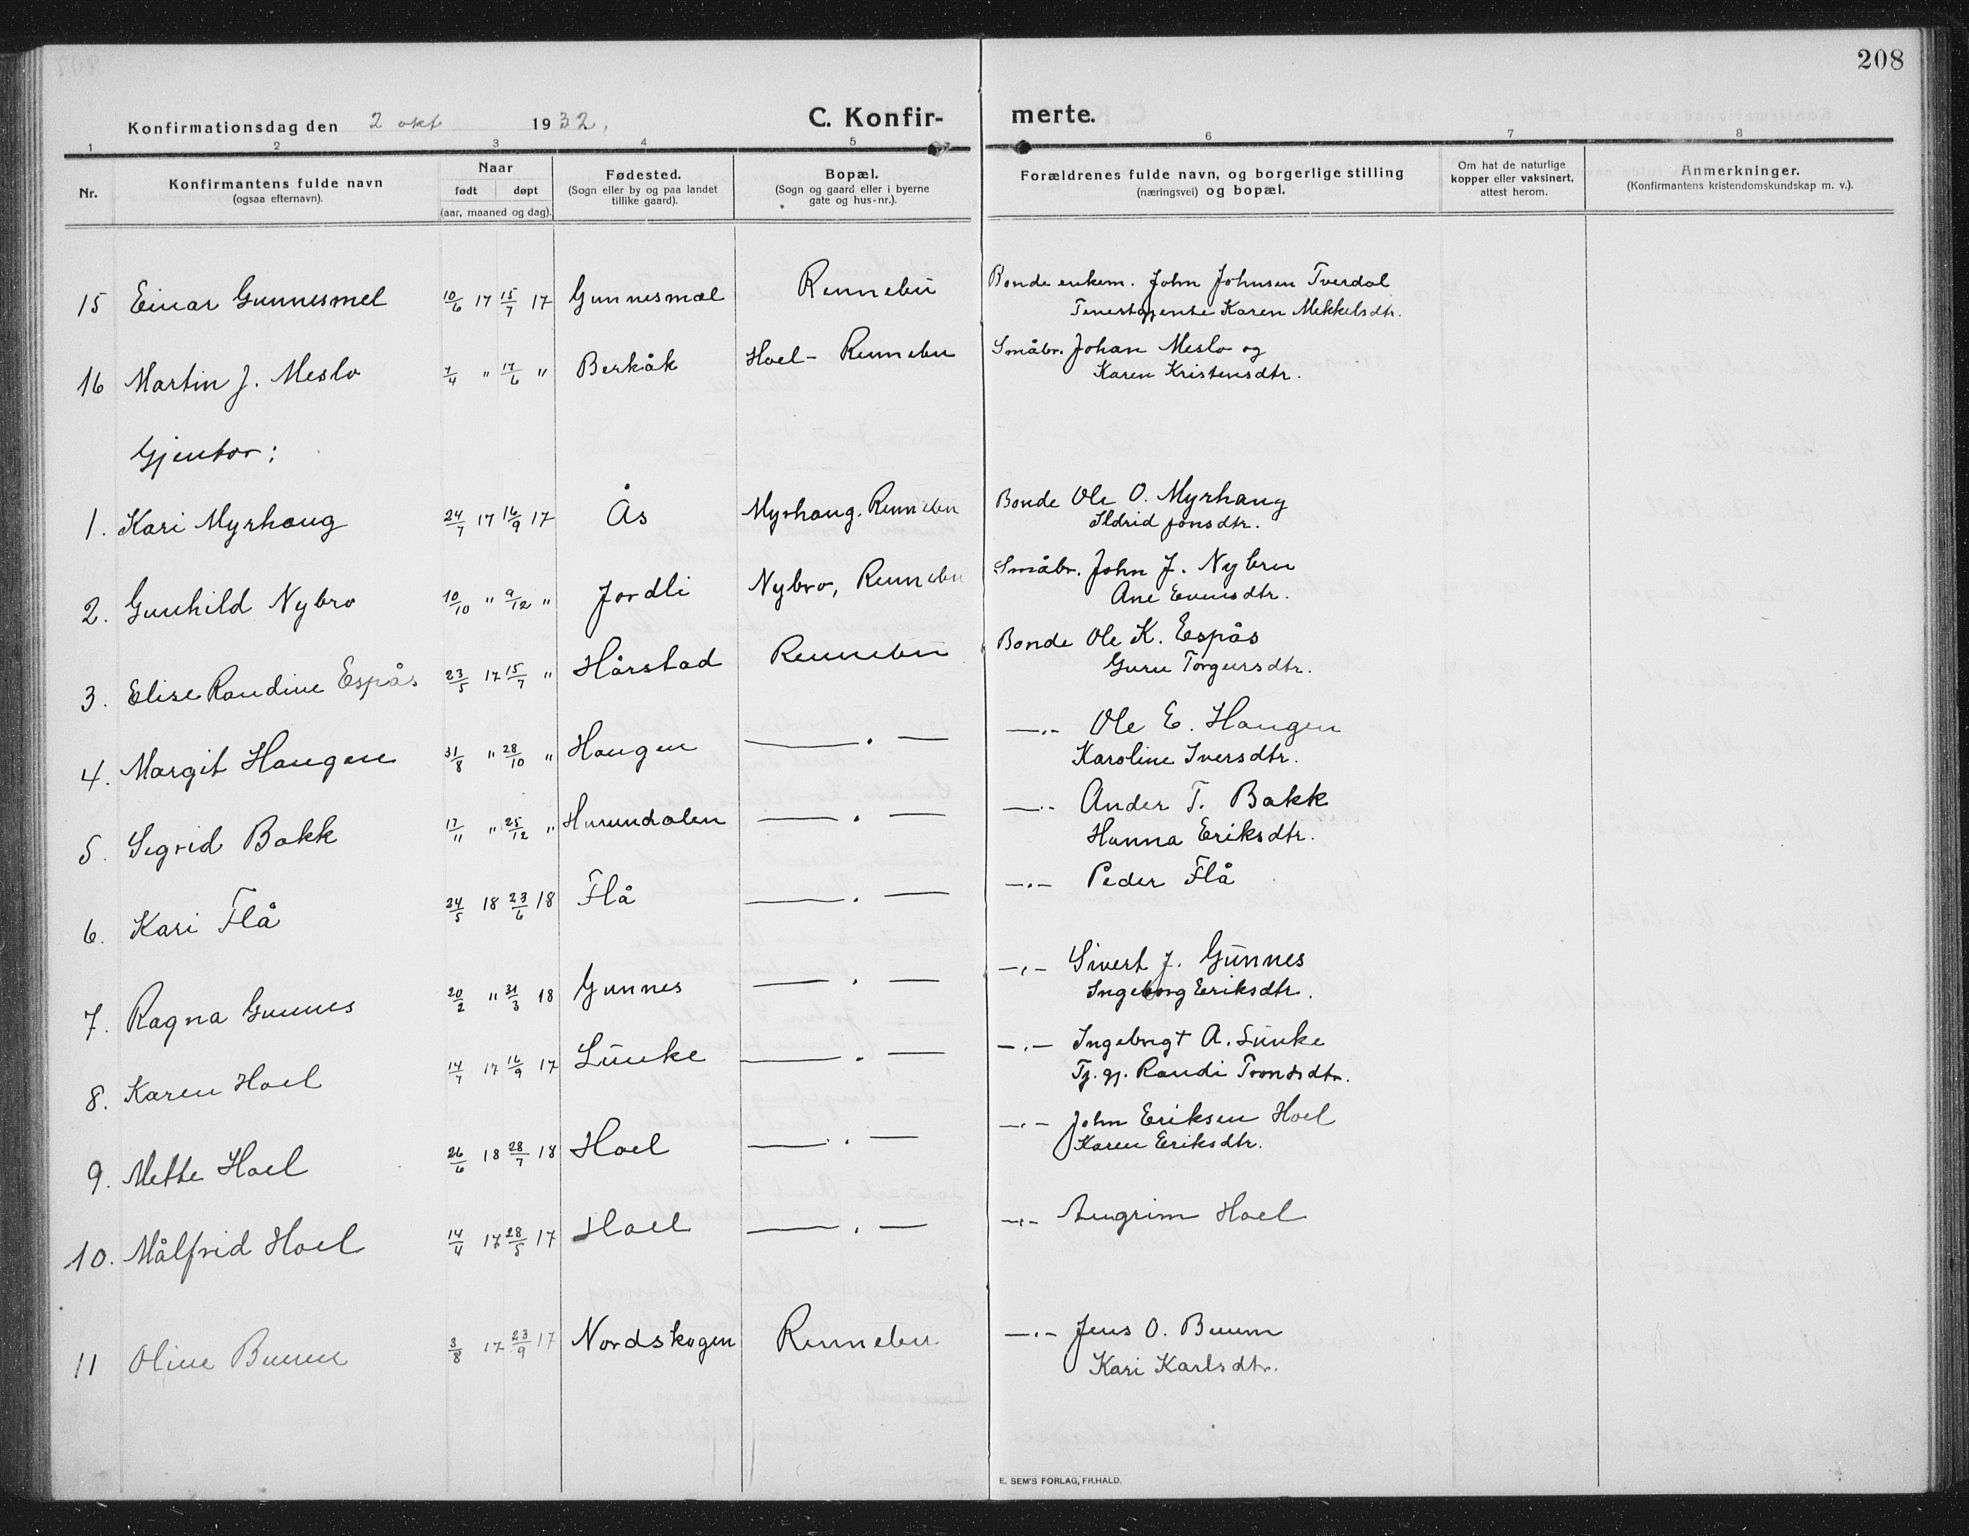 208
Konfirmationsdag den 2 okt 1932.
C. Konfir- merte.
1 2 3 4 5 6 7 8
Nr.
Konfirmantens fulde navn
(ogsaa efternavn).
Naar
født døpt
(aar, maaned og dag).
Fødested.
(Sogn eller by og paa landet
tillike gaard).
Bopæl.
(Sogn og gaard eller i byerne
gate og hus-nr.).
Forældrenes fulde navn, og borgerlige stilling
(næringsvei) og bopæl.
Om hat de naturlige
kopper eller vaksinert,
attest herom.
Anmerkninger.
(Konfirmantens kristendomskundskap m. v.).
15 Einar Gunnesmel 10/6 17 15/7 17 Gunnesmæl Rennebu Bonde enkem. John Johnsen Tverdal
Tenestogjente Karen Mekkelsdtr.
16 Martin J. Meslo 7/4 " 17/6 " Berkåk Hoel - Rennebu Småbr. Johan Meslo og
Karen Kristensdtr.
Gjentor:
1. Kari Myrhaug 24/7 17 16/9 17 Ås Myrhaug. Rennebu Bonde Ole O. Myrhaug
Ildrid Jonsdtr.
2. Gunhild Nybro 10/10 " 9/12 " Jordli Nybro, Rennebu Småbr. John J. Nybru
Ane Evensdtr.
3. Elise Randine Espås 23/5 17 15/7 " Hårstad Rennebu Bonde Ole K. Espås
Guru Torgersdtr.
4. Margit Haugen 31/8 " 28/10 " Haugen —.— —.— Ole E. Haugen
Karoline Iversdtr.
5. Sigrid Bakk 17/11 " 25/12 " Hurundalen —.— —.— Ander T. Bakk
Hanna Eriksdtr.
6. Kari Flå 24/5 18 23/6 18 Flå —.— —.— Peder Flå
7. Ragna Gunnes 20/2 " 31/3 18 Gunnes —.— —.— Sivert J. Gunnes
Ingeborg Eriksdtr.
8. Karen Hoel 14/7 17 16/9 17 Lunke —.— —.— Ingebrigt A. Lunke
Tj. gj. Randi Trondsdtr.
9. Mette Hoel 26/6 18 28/7 18 Hoel —.— —.— John Eriksen Hoel
Karen Eriksdtr.
10. Målfrid Hoel 14/4 17 28/5 17 Hoel —.— —.— Angrim Hoel
11 Oline Buum 3/8 17 23/9 17 Nordskogen Rennebu. —.— Jens O. Buum
Kari Karlsdtr.
E. SEM'S FORLAG, FR.HALD.